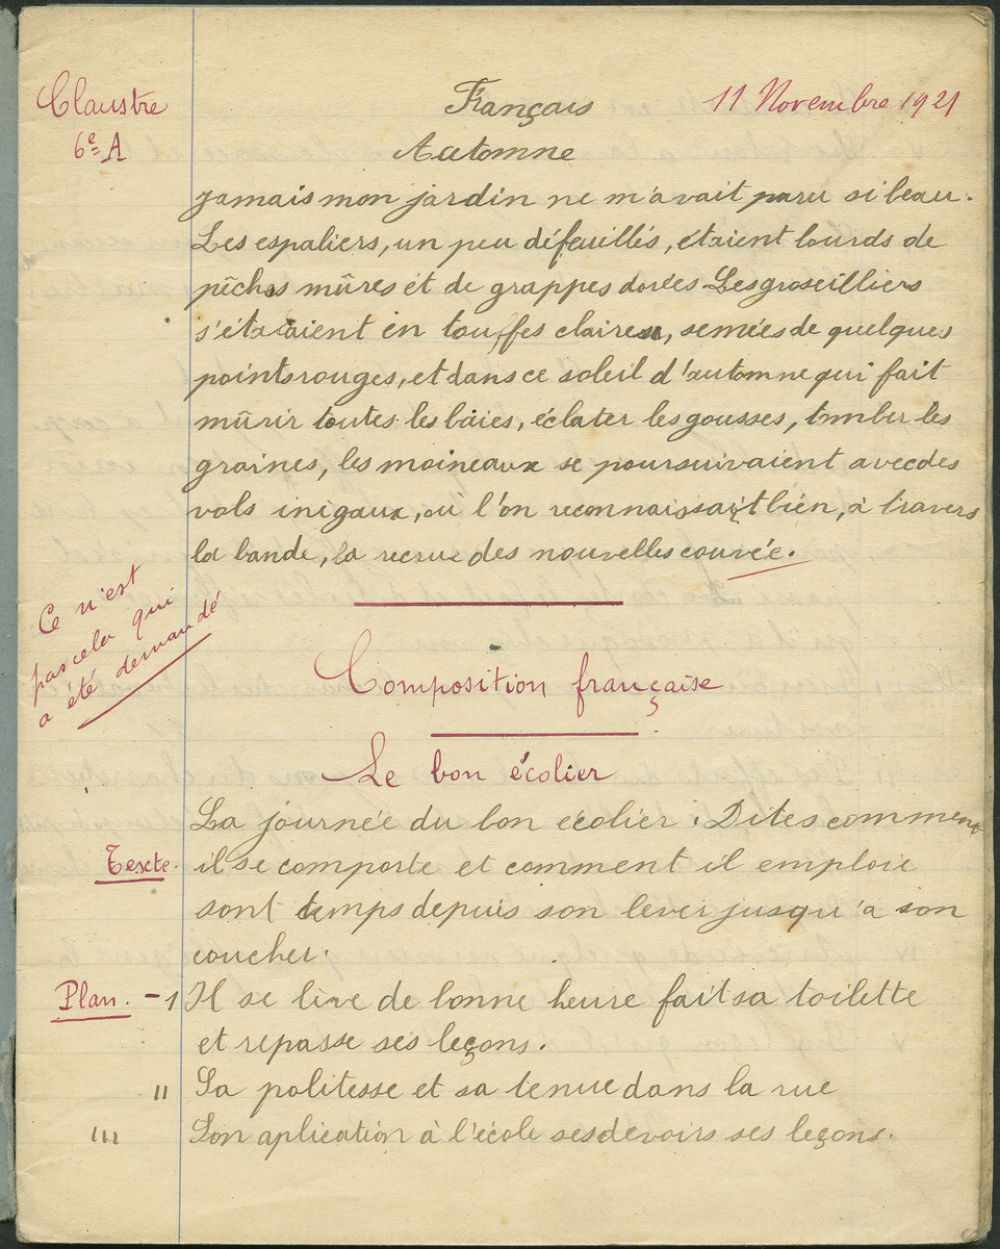 Claustre
6e A
Français
11 Novembre 1921
Automne
Jamais mon jardin ne m'avait paru si beau.
Les espaliers, un peu défeuillés, étaient lourds de
pêches mûres et de grappes dorées. Les groseilliers
s'étalaient en touffes claires, semées de quelques
points rouges, et dans ce soleil d'automne qui fait
mûrir toutes les baies, éclater les gousses, tomber les
graines, les moineaux se poursuivaient avec des
vols inégaux, où l'on reconnaissait bien, à travers
la bande, la recrue des nouvelles couvée.
Ce n'est
pas cela qui
a été demandé
Composition française
Le bon écolier
La journée du bon écolier : Dites comment
Texte. il se comporte et comment il emploie
sont temps depuis son lever jusqu'a son
coucher.
Plan. - 1 Il se lève de bonne heure fait sa toilette
et repasse ses leçons.
11 Sa politesse et sa tenue dans la rue
111 Son aplication à l'école ses devoirs ses leçons.